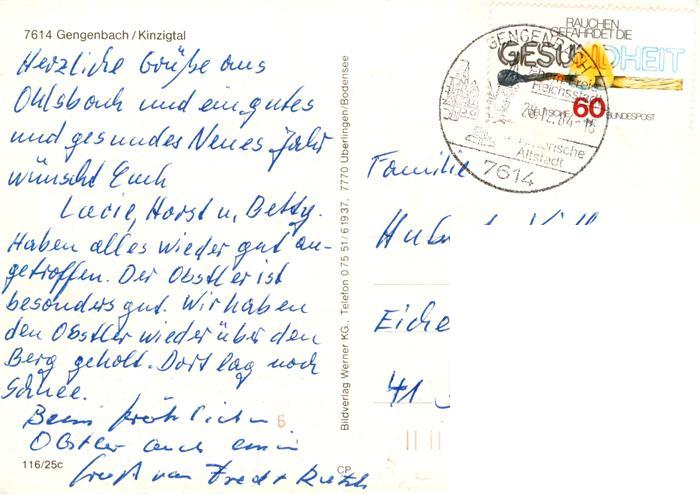 7614 Gengenbach / Kinzigtal
Herzliche Grüße aus
Ohlsbach und ein gutes
und gesundes Neues Jahr
wünscht Euch
Lucie, Horst u. Betty.
Haben alles wieder gut an-
getroffen. Der Obstler ist
besonders gut. Wir haben
den Obstler wieder über den
Berg geholt. Dort lag noch
Schnee.
Beim fröhlichen
Obstler auch einen
Gruß von Fred +
116/25c
CP
6
Bildverlag Werner KG., Telefon 0 75 51 / 6 19 37, 7770 Überlingen/Bodensee
RAUCHEN
GEFÄHRDET DIE
GESUNDHEIT
60
DEUTSCHE BUNDESPOST
GENGENBACH
Ehem. Freie
Reichsstadt
Historische
Altstadt
7614
Familie
Eiche
41